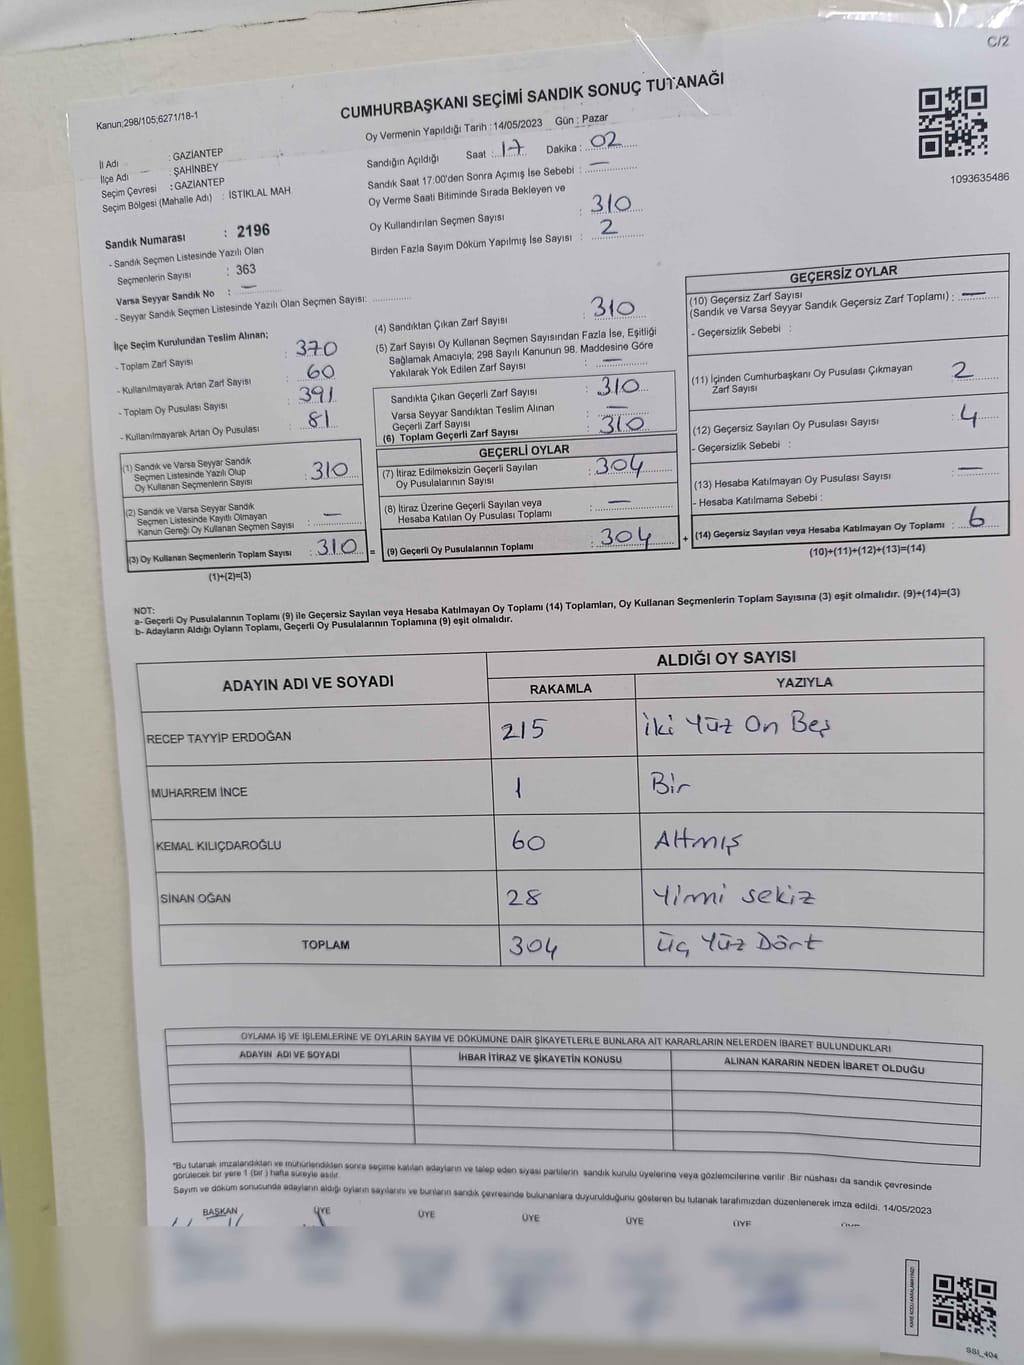 C/2
Kanun;298/105;6271/18-1
CUMHURBAŞKANI SEÇİMİ SANDIK SONUÇ TUTANAĞI
Oy Vermenin Yapıldığı Tarih : 14/05/2023 Gün : Pazar
1093635486
İl Adı : GAZİANTEP
İlçe Adı : ŞAHİNBEY
Seçim Çevresi : GAZİANTEP
Seçim Bölgesi (Mahalle Adı) : İSTİKLAL MAH.
Sandık Numarası : 2196
- Sandık Seçmen Listesinde Yazılı Olan
Seçmenlerin Sayısı : 363
Varsa Seyyar Sandık No : —
- Seyyar Sandık Seçmen Listesinde Yazılı Olan Seçmen Sayısı:
Sandığın Açıldığı Saat : 17 Dakika : 02
Sandık Saat 17.00'den Sonra Açımış İse Sebebi : —
Oy Verme Saati Bitiminde Sırada Bekleyen ve
Oy Kullandırılan Seçmen Sayısı : 310
Birden Fazla Sayım Döküm Yapılmış İse Sayısı : 2
İlçe Seçim Kurulundan Teslim Alınan;
- Toplam Zarf Sayısı : 370
- Kullanılmayarak Artan Zarf Sayısı : 60
- Toplam Oy Pusulası Sayısı : 391
- Kullanılmayarak Artan Oy Pusulası : 81
(1) Sandık ve Varsa Seyyar Sandık
Seçmen Listesinde Yazılı Olup
Oy Kullanan Seçmenlerin Sayısı : 310
(2) Sandık ve Varsa Seyyar Sandık
Seçmen Listesinde Kayıtlı Olmayan
Kanun Gereği Oy Kullanan Seçmen Sayısı : —
(3) Oy Kullanan Seçmenlerin Toplam Sayısı : 310 =
(1)+(2)=(3)
(4) Sandıktan Çıkan Zarf Sayısı : 310
(5) Zarf Sayısı Oy Kullanan Seçmen Sayısından Fazla İse, Eşitliği
Sağlamak Amacıyla; 298 Sayılı Kanunun 98. Maddesine Göre
Yakılarak Yok Edilen Zarf Sayısı : —
Sandıkta Çıkan Geçerli Zarf Sayısı : 310
Varsa Seyyar Sandıktan Teslim Alınan
Geçerli Zarf Sayısı : —
(6) Toplam Geçerli Zarf Sayısı : 310
GEÇERLİ OYLAR
(7) İtiraz Edilmeksizin Geçerli Sayılan
Oy Pusulalarının Sayısı : 304
(8) İtiraz Üzerine Geçerli Sayılan veya
Hesaba Katılan Oy Pusulası Toplamı : —
(9) Geçerli Oy Pusulalarının Toplamı : 304 +
GEÇERSİZ OYLAR
(10) Geçersiz Zarf Sayısı
(Sandık ve Varsa Seyyar Sandık Geçersiz Zarf Toplamı) : —
- Geçersizlik Sebebi :
(11) İçinden Cumhurbaşkanı Oy Pusulası Çıkmayan
Zarf Sayısı : 2
(12) Geçersiz Sayılan Oy Pusulası Sayısı : 4
- Geçersizlik Sebebi :
(13) Hesaba Katılmayan Oy Pusulası Sayısı : —
- Hesaba Katılmama Sebebi :
(14) Geçersiz Sayılan veya Hesaba Katılmayan Oy Toplamı : 6
(10)+(11)+(12)+(13)=(14)
NOT:
a- Geçerli Oy Pusulalarının Toplamı (9) ile Geçersiz Sayılan veya Hesaba Katılmayan Oy Toplamı (14) Toplamları, Oy Kullanan Seçmenlerin Toplam Sayısına (3) eşit olmalıdır. (9)+(14)=(3)
b- Adayların Aldığı Oyların Toplamı, Geçerli Oy Pusulalarının Toplamına (9) eşit olmalıdır.
ADAYIN ADI VE SOYADI ALDIĞI OY SAYISI
RAKAMLA YAZIYLA
RECEP TAYYİP ERDOĞAN 215 İki Yüz On Beş
MUHARREM İNCE 1 Bir
KEMAL KILIÇDAROĞLU 60 Altmış
SİNAN OĞAN 28 Yirmi sekiz
TOPLAM 304 Üç Yüz Dört
OYLAMA İŞ VE İŞLEMLERİNE VE OYLARIN SAYIM VE DÖKÜMÜNE DAİR ŞİKAYETLERLE BUNLARA AİT KARARLARIN NELERDEN İBARET BULUNDUKLARI
ADAYIN ADI VE SOYADI İHBAR İTİRAZ VE ŞİKAYETİN KONUSU ALINAN KARARIN NEDEN İBARET OLDUĞU
*Bu tutanak imzalandıktan ve mühürlendikten sonra seçime katılan adayların ve talep eden siyasi partilerin sandık kurulu üyelerine veya gözlemcilerine verilir. Bir nüshası da sandık çevresinde
görülecek bir yere 1 (bir) hafta süreyle asılır.
Sayım ve döküm sonucunda adayların aldığı oyların sayılarını ve bunların sandık çevresinde bulunanlara duyurulduğunu gösteren bu tutanak tarafımızdan düzenlenerek imza edildi. 14/05/2023
BAŞKAN ÜYE ÜYE ÜYE ÜYE ÜYE ÜYE
KARE KODU KARALAMAYINIZ!
SSL_404